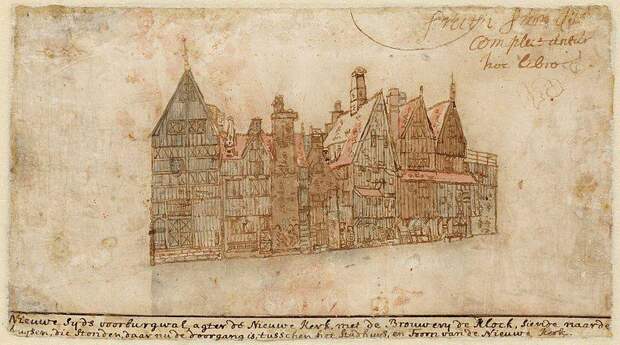 complet
hoc libro
Nieuwe, Sijds voorburgwal, agter de Nieuwe Kerk, met de Brouwery de Klock, siende naar de
huysen, die stonden, daar nu de doorgang is, tusschen het Stadhuys, en Toorn van de Nieuwe Kerk.